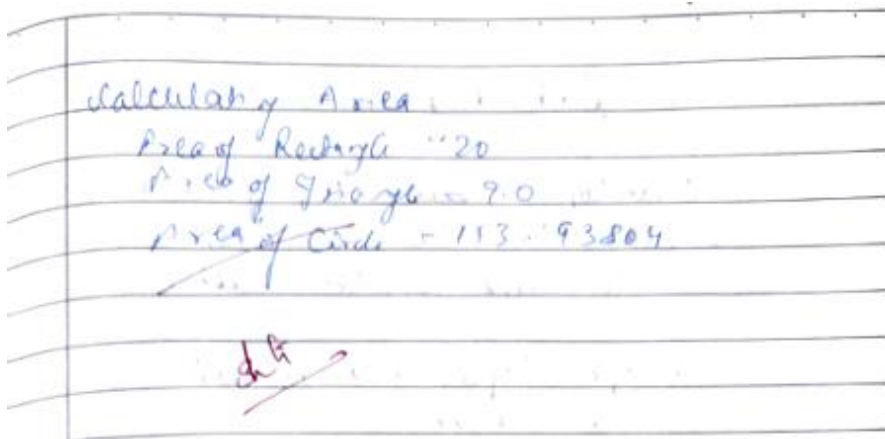 Calculating Area
Area of Rectangle = 20
Area of Triangle = 9.0
Area of Circle - 153.93804